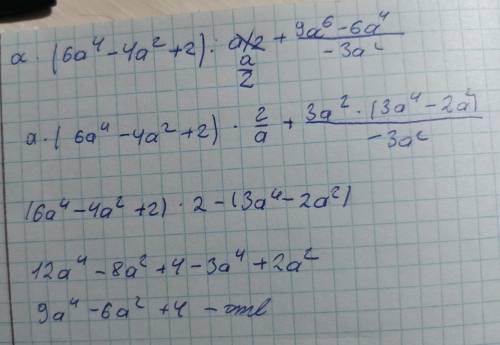 a · (6a⁴ - 4a² + 2) : a/2 + (9a⁶ - 6a⁴)/(-3a²)
a/2
a · (6a⁴ - 4a² + 2) · 2/a + (3a² · (3a⁴ - 2a²))/(-3a²)
(6a⁴ - 4a² + 2) · 2 - (3a⁴ - 2a²)
12a⁴ - 8a² + 4 - 3a⁴ + 2a²
9a⁴ - 6a² + 4 - отв